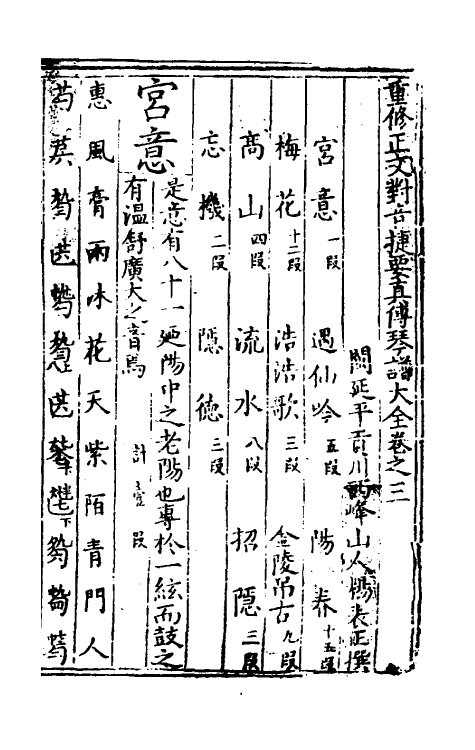 重修正文對音捷要真傳琴譜大全卷之三
閩延平貢川西峰山人楊表正撰
宮意一段 遇仙吟五段 陽春十五段
梅花十二段 浩浩歌三段 金陵吊古九段
髙山四段 流水八段 招隱三段
忘機二段 隱德三段
宮意 是意有八十一廼陽中之老陽也專於一絃而鼓之
有溫舒廣大之音焉 計壹段
惠風膏雨沐花天紫陌青門人